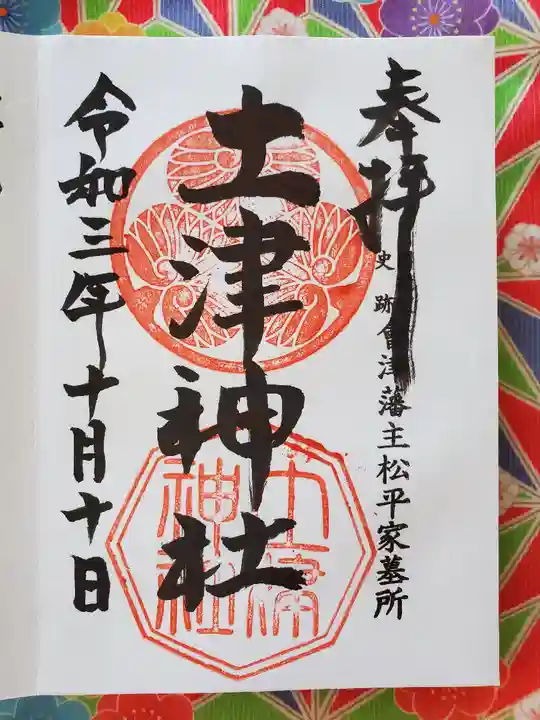 奉拝
史跡會津藩主松平家墓所
土津神社
土津神社
令和三年十月十日